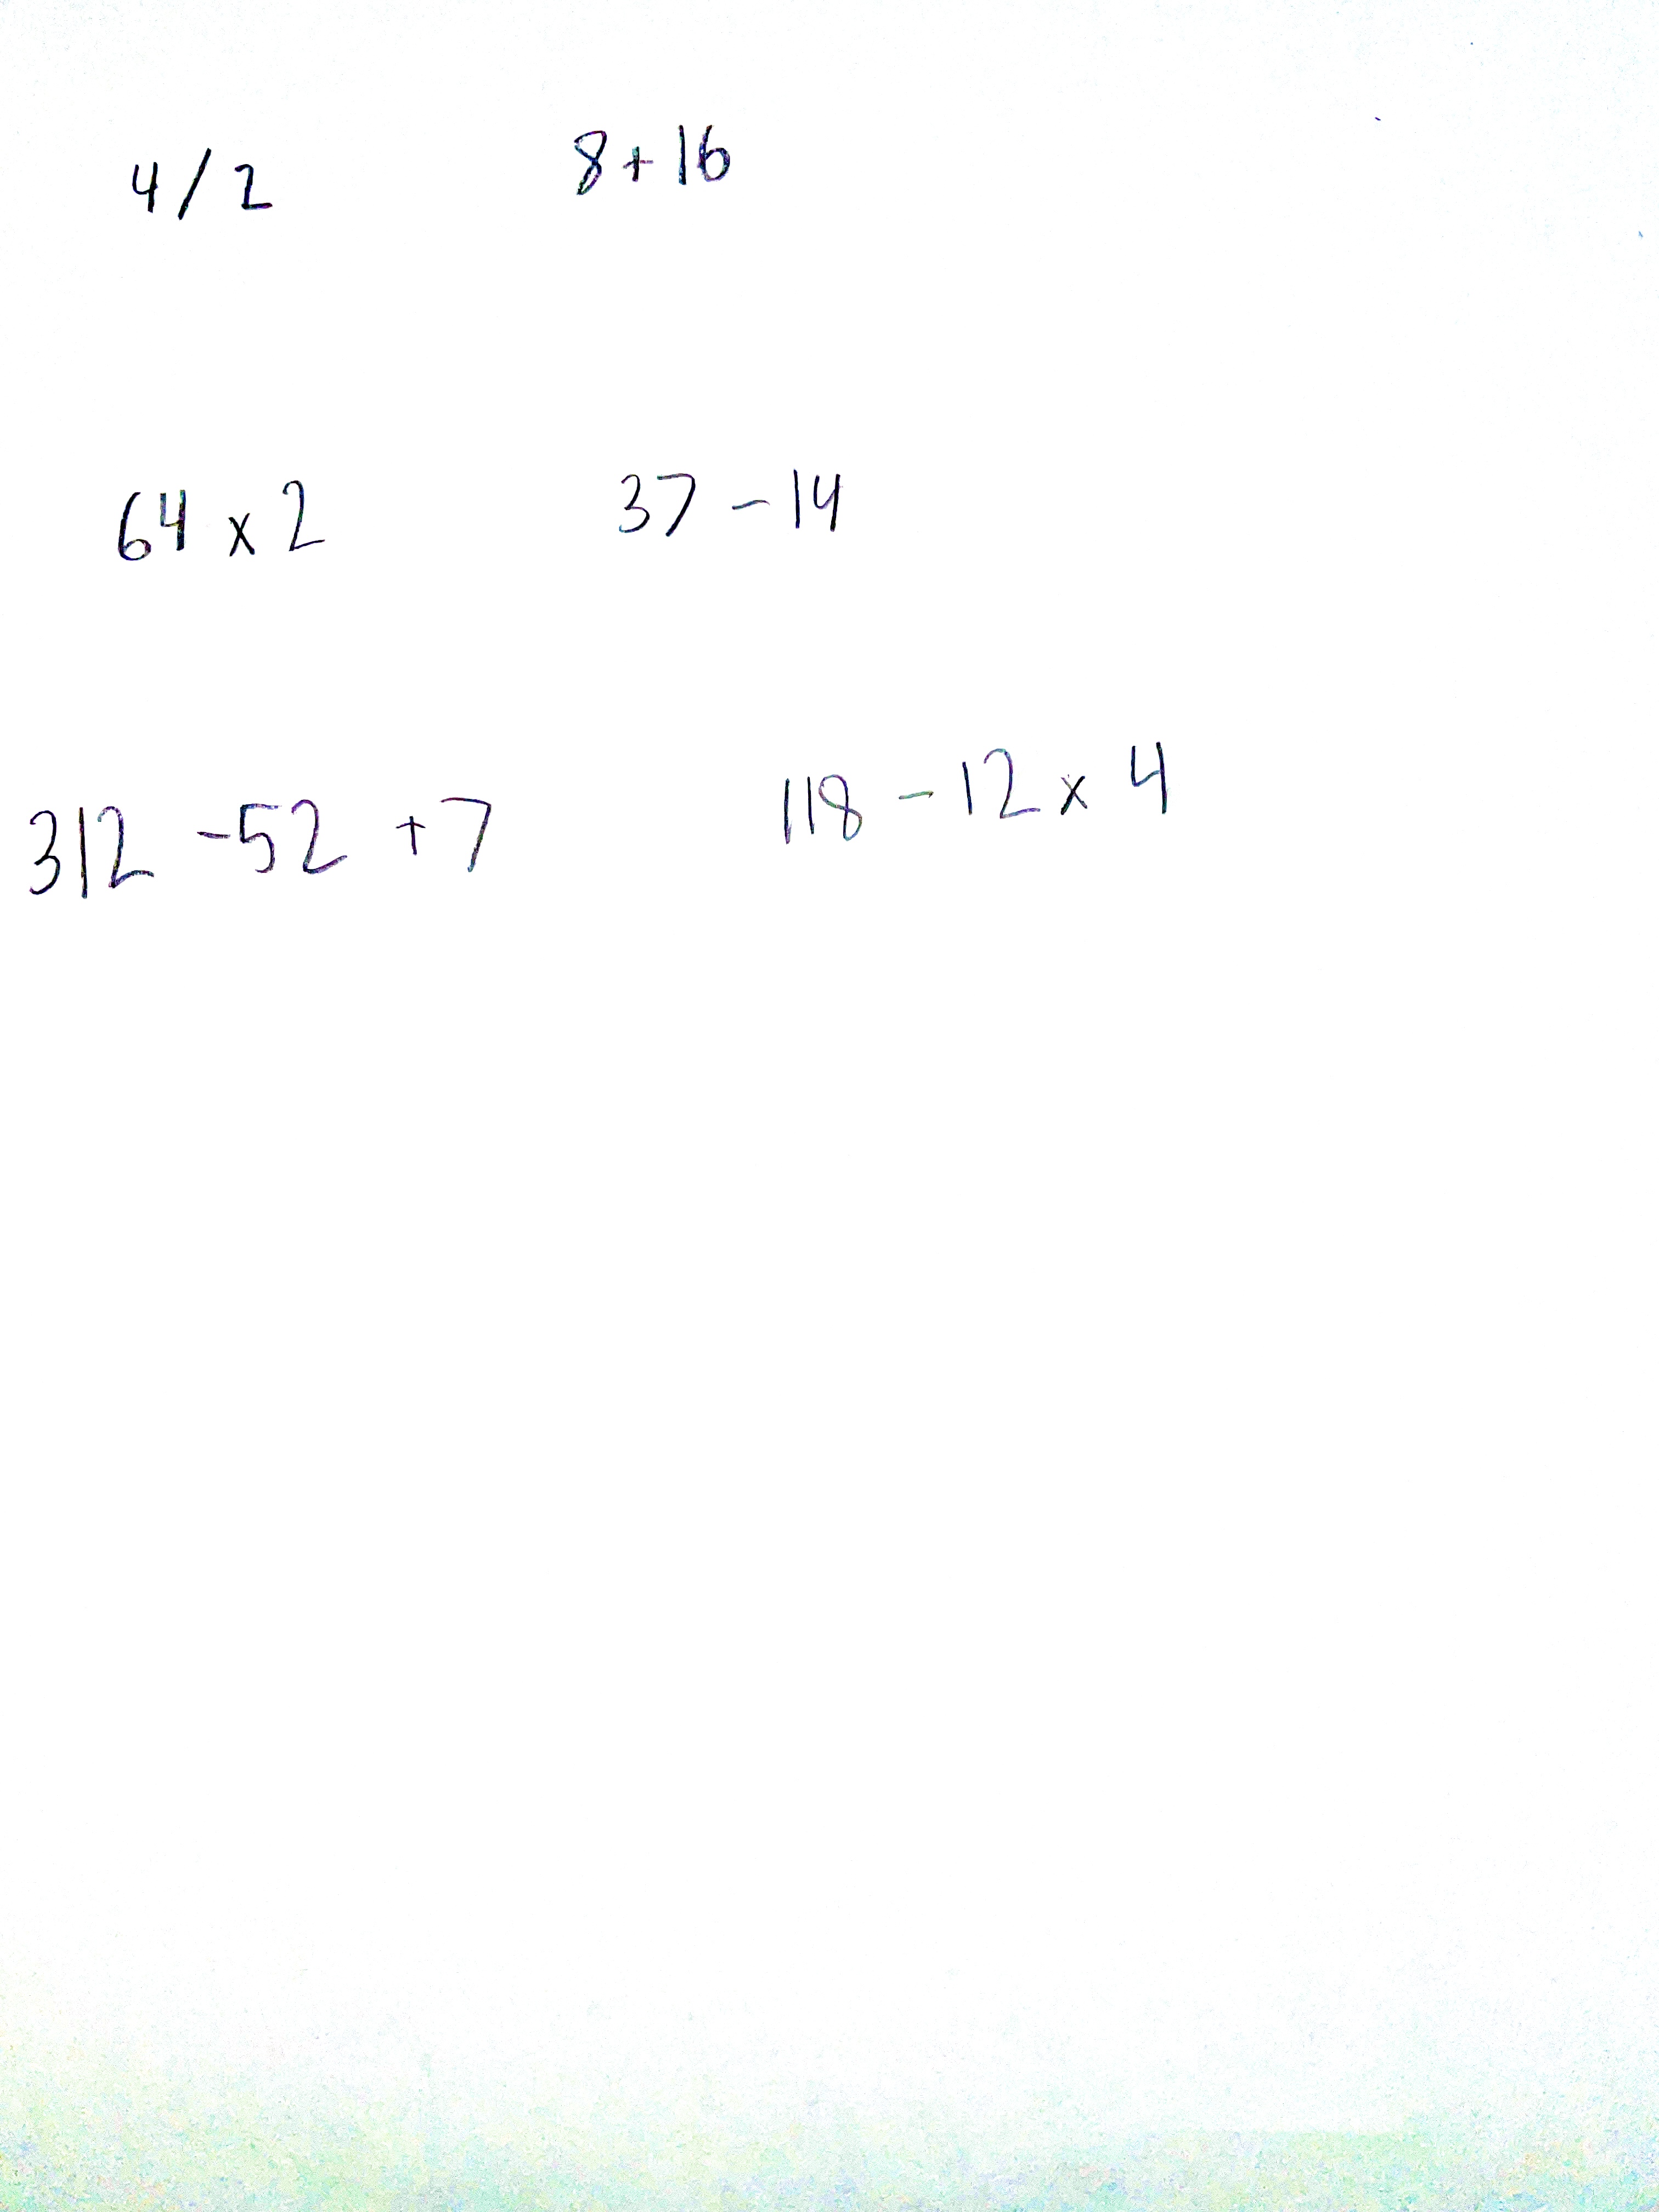 4/2 8+16
64 x 2 37 - 14
312 - 52 + 7 118 - 12 x 4